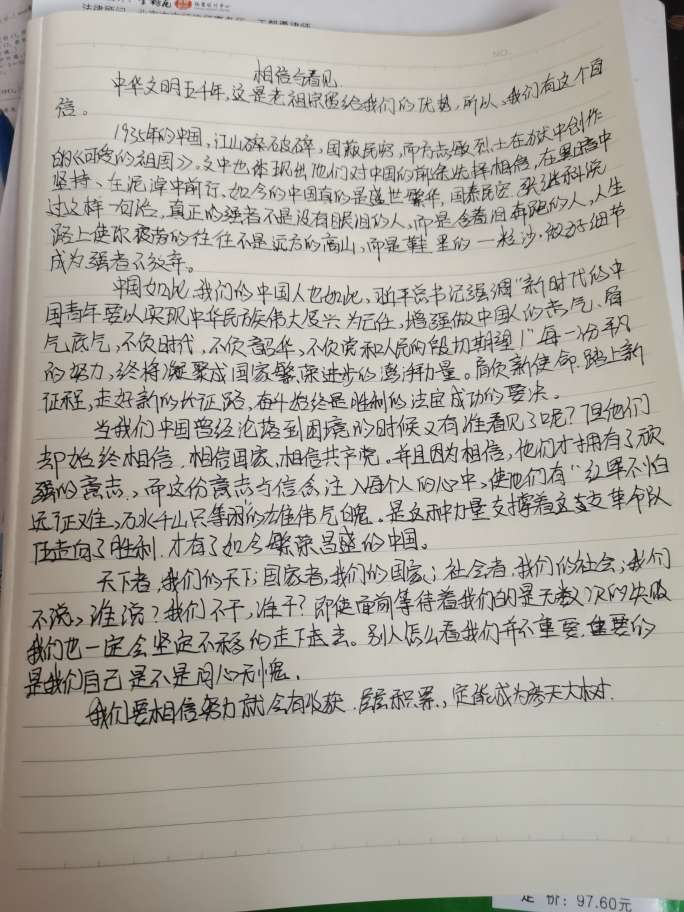 法律顾问
NO.
相信与看见
中华文明五千年,这是老祖宗留给我们的优势,所以,我们有这个自
信。
1935年的中国,江山碎破碎,国蔽民穷,而方志敏烈士在狱中创作
的《可爱的祖国》。文中也体现出他们对中国的前途选择相信,在黑暗中
坚持、在泥泞中前行。如今的中国真的是盛世繁华,国泰民安。张继科说
过这样一句话,真正的强者不是没有眼泪的人,而是含着泪奔跑的人,人生
路上使你疲劳的往往不是远方的高山,而是鞋里的一粒沙,做好细节
成为强者不放弃。
中国如此,我们的中国人也如此,习近平总书记强调"新时代的中
国青年要以实现中华民族伟大复兴为己任,增强做中国人的志气、骨
气底气,不负时代,不负韶华,不负党和人民的殷切期望!"每一份平凡
的努力,终将凝聚成国家繁荣进步的澎湃力量。肩负新使命,踏上新
征程,走好新的长征路,奋斗始终是胜利的法宝成功的要决。
当我们中国曾经沦落到困境的时候又有谁看见了呢?但他们
却始终相信,相信国家,相信共产党。并且因为相信,他们才拥有了顽
强的意志,而这份意志与信念注入每个人的心中,使他们有"红军不怕
远征难,万水千山只等闲"的雄伟气魄。是这种力量支撑着这支革命队
伍走向了胜利,才有了如今繁荣昌盛的中国。
天下者,我们的天下;国家者,我们的国家;社会者,我们的社会;我们
不说,谁说?我们不干,谁干?即使面前等待着我们的是无数次的失败
我们也一定会坚定不移的走下去。别人怎么看我们并不重要,重要的
是我们自己是不是问心无愧。
我们要相信努力就会有收获,层层积累,定能成为参天大树.
定 价:97.60元